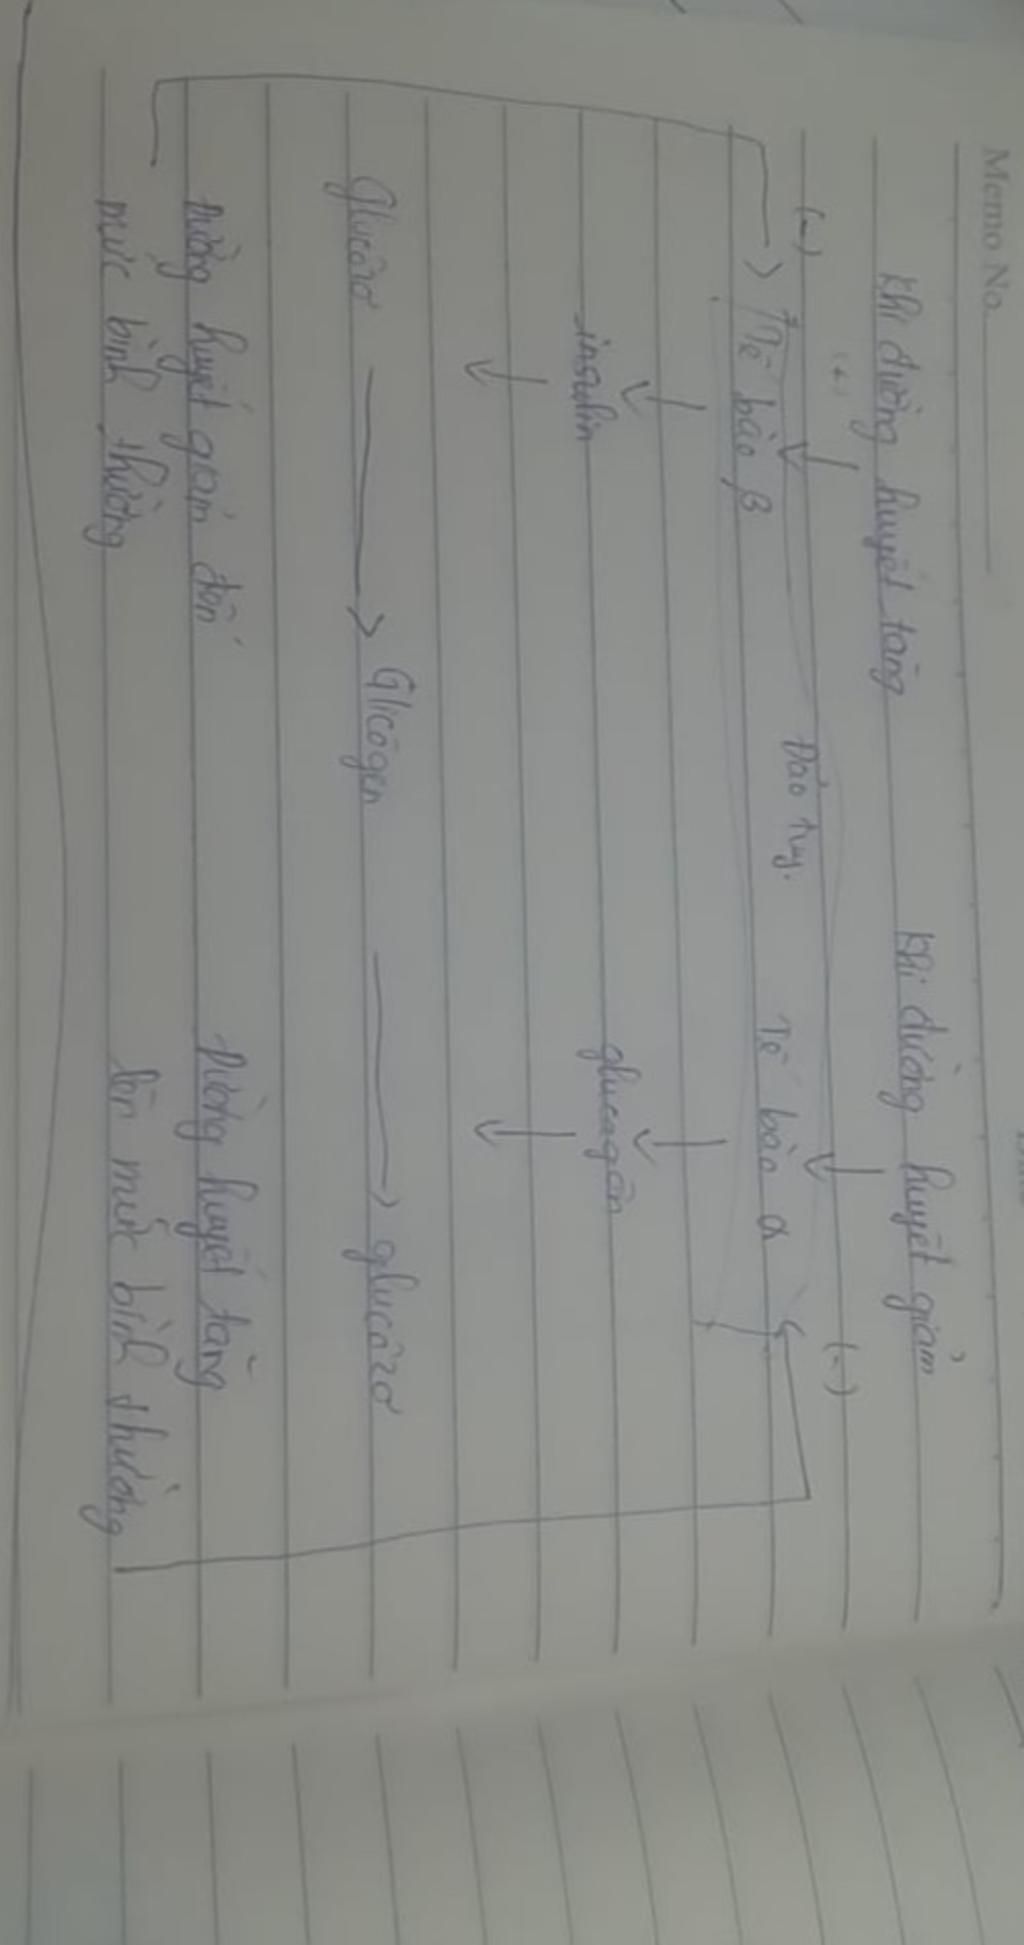 Memo No.
Khi đường huyết tăng Khi đường huyết giảm
(-) (+) (-)
Đảo tụy.
Tế bào β Tế bào α
insulin glucagôn
Glucôzơ Glicôgen glucôzơ
Đường huyết giảm đến Đường huyết tăng
mức bình thường lên mức bình thường